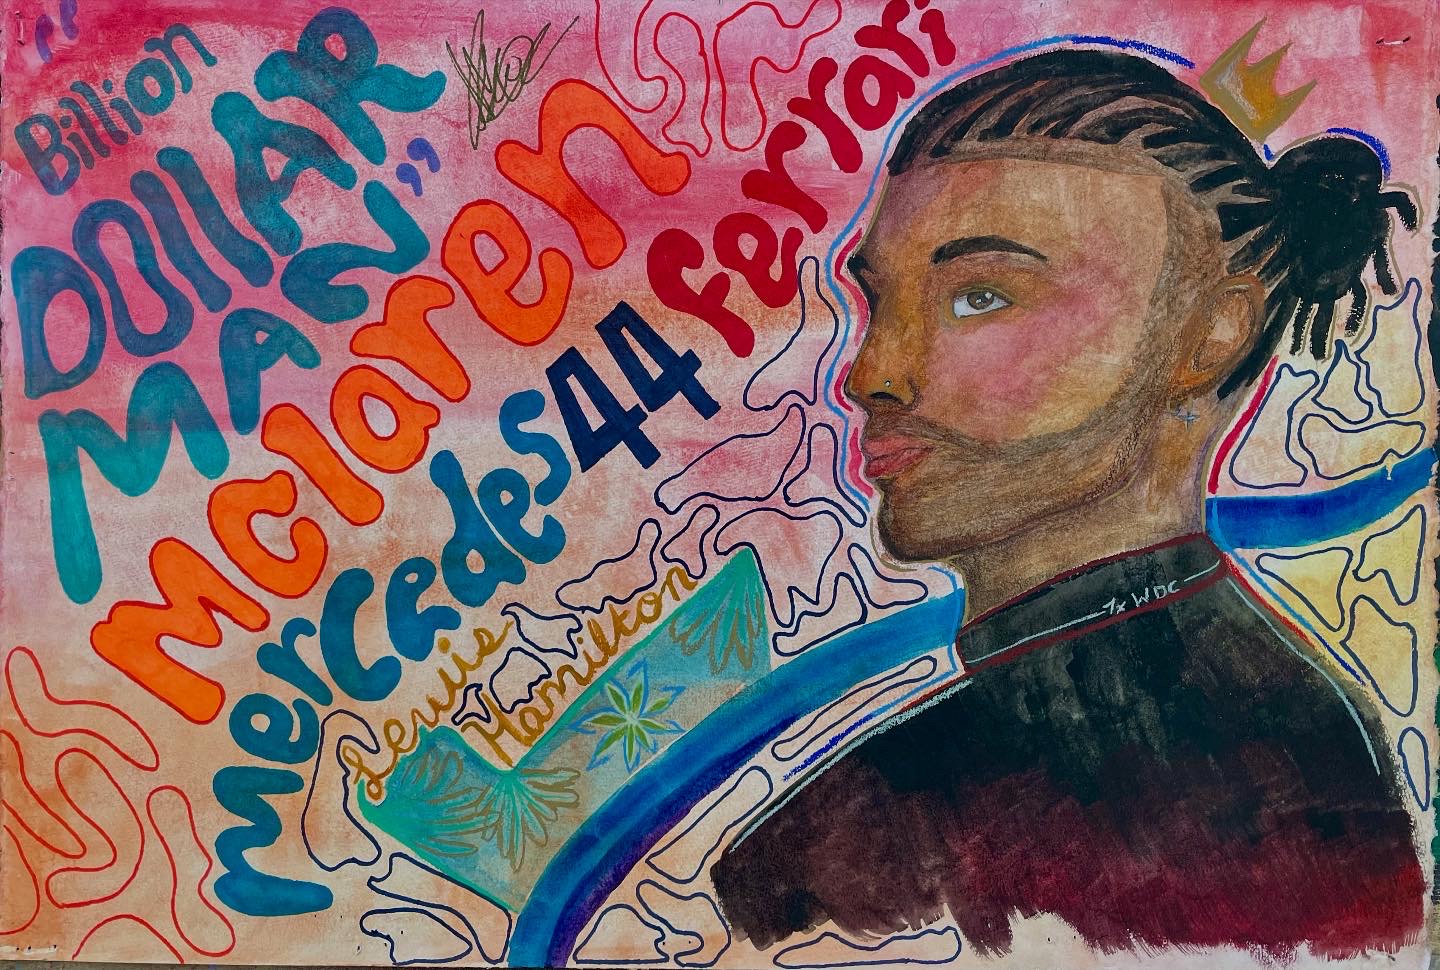 “Billion
DOllAR
MAN”
mclaren
mercedes 44 ferrari
Lewis
Hamilton
7x WDC